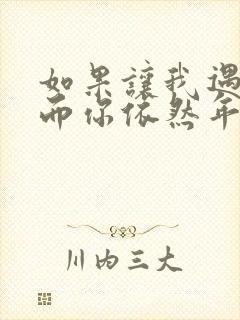 如果讓我遇
而你依然年
川内三大